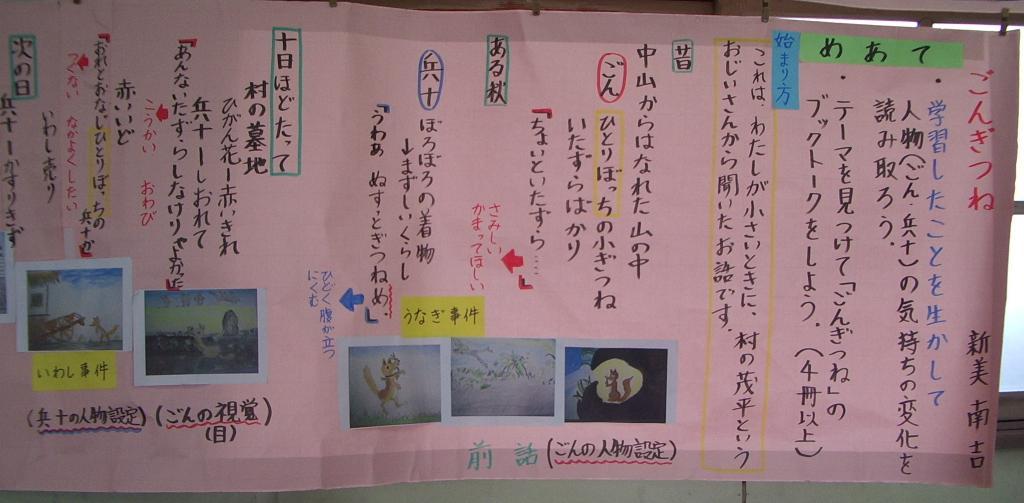 ごんぎつね
新美南吉
めあて
・学習したことを生かして
人物(ごん・兵十)の気持ちの変化を
読み取ろう。
・テーマを見つけて「ごんぎつね」の
ブックトークをしよう。(4冊以上)
始まり方
これは、わたしが小さいときに、村の茂平という
おじいさんから聞いたお話です。
昔
中山からはなれた山の中
ごん
ひとりぼっちの小ぎつね
いたずらばかり
「ちょいといたずら……」
さみしい
かまってほしい
ある秋
兵十
ぼろぼろの着物
→まずしいくらし
「うわあ ぬすっとぎつねめ」
ひどく腹が立つ
にくむ
うなぎ事件
前話
(ごんの人物設定)
十日ほどたって
村の墓地
ひがん花ー赤いきれ
兵十ーしおれて
「あんないたずらしなけりゃよかった」
こうかい おわび
(ごんの視覚)
(目)
赤いいど
「おれとおなじひとりぼっちの
兵十か」
なかよくしたい
いわし売り
いわし事件
(兵十の人物設定)
次の日
兵十ーかすりきず